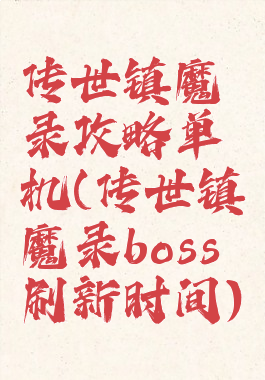 传世镇魔
录攻略单
机(传世镇
魔录boss
刷新时间)